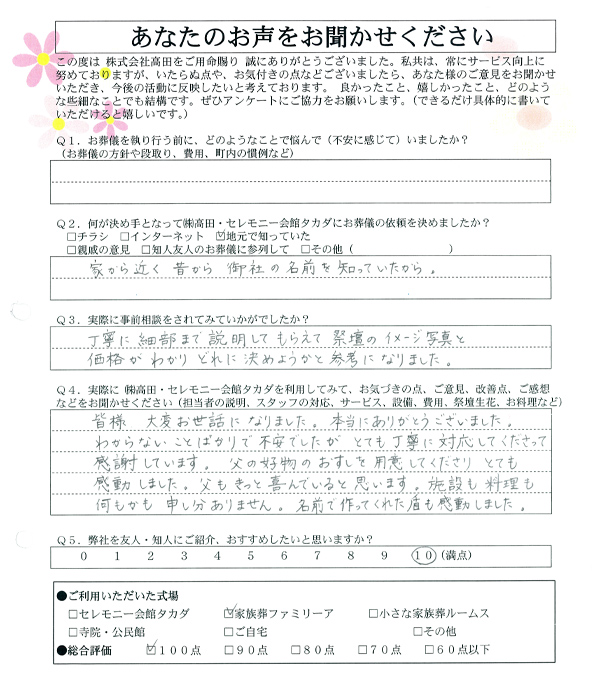 あなたのお声をお聞かせください
この度は 株式会社高田をご用命賜り 誠にありがとうございました。私共は、常にサービス向上に
努めておりますが、いたらぬ点や、お気付きの点などございましたら、あなた様のご意見をお聞かせ
いただき、今後の活動に反映したいと考えております。 良かったこと、嬉しかったこと、どのよう
な些細なことでも結構です。ぜひアンケートにご協力をお願いします。（できるだけ具体的に書いて
いただけると嬉しいです。）
Q１．お葬儀を執り行う前に、どのようなことで悩んで（不安に感じて）いましたか？
（お葬儀の方針や段取り、費用、町内の慣例など）
Q２．何が決め手となって㈱高田・セレモニー会館タカダにお葬儀の依頼を決めましたか？
□チラシ □インターネット ☑地元で知っていた
□親戚の意見 □知人友人のお葬儀に参列して □その他（ ）
家から近く 昔から 御社の名前を知っていたから。
Q３．実際に事前相談をされてみていかがでしたか？
丁寧に細部まで説明してもらえて祭壇のイメージ写真と
価格がわかり どれに決めようかと参考になりました。
Q４．実際に ㈱高田・セレモニー会館タカダを利用してみて、お気づきの点、ご意見、改善点、ご感想
などをお聞かせください（担当者の説明、スタッフの対応、サービス、設備、費用、祭壇生花、お料理など）
皆様 大変お世話になりました。本当にありがとうございました。
わからないことばかりで不安でしたが とても丁寧に対応してくださって
感謝しています。 父の好物のおすしを用意してくださり とても
感動しました。父もきっと喜んでいると思います。施設も料理も
何もかも 申し分ありません。名前で作ってくれた盾も感動しました。
Q５．弊社を友人・知人にご紹介、おすすめしたいと思いますか？
０ １ ２ ３ ４ ５ ６ ７ ８ ９ １０（満点）
●ご利用いただいた式場
□セレモニー会館タカダ ☑家族葬ファミリーア □小さな家族葬ルームス
□寺院・公民館 □ご自宅 □その他
●総合評価 ☑１００点 □９０点 □８０点 □７０点 □６０点以下